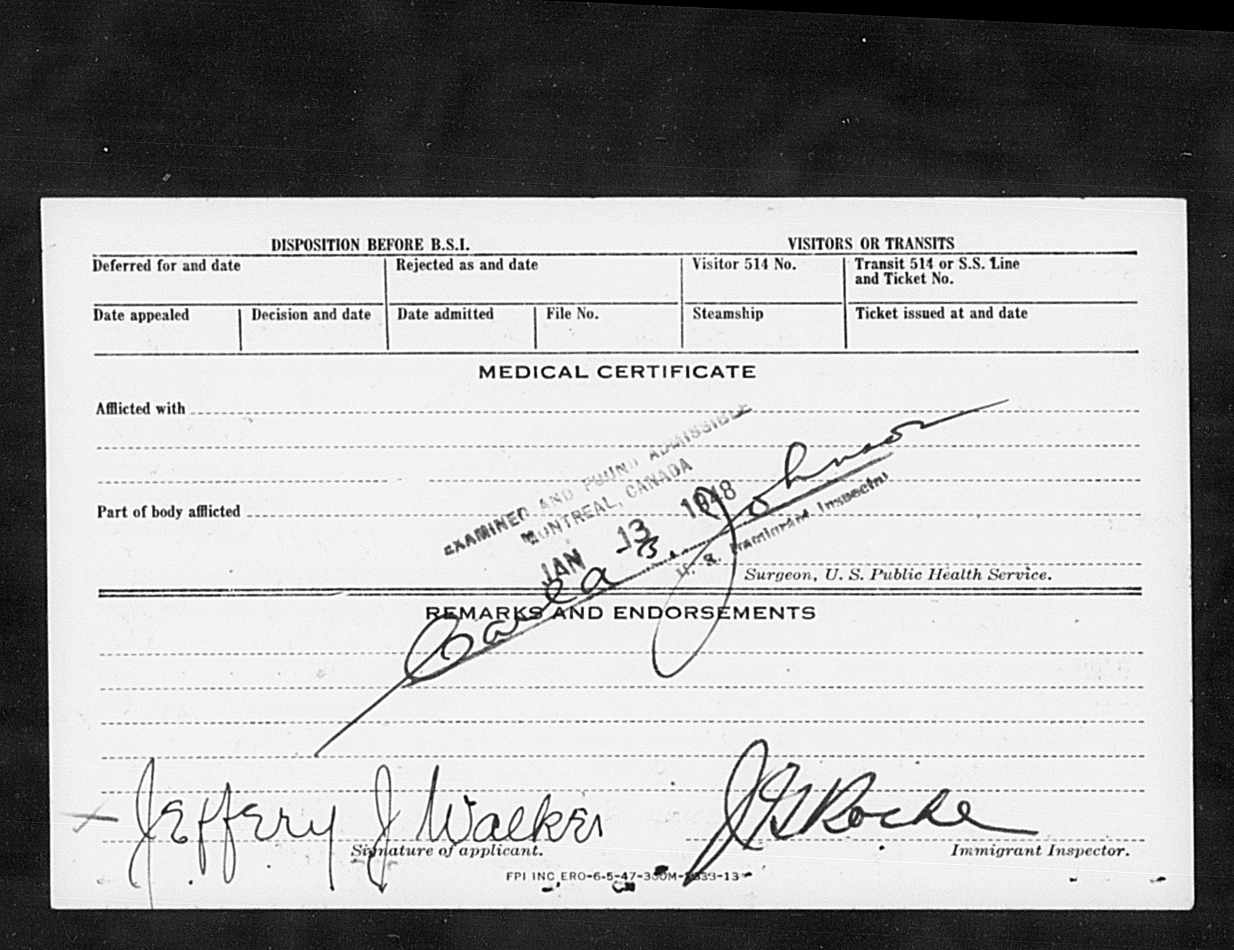 DISPOSITION BEFORE B.S.I.
VISITORS OR TRANSITS
Deferred for and date
Rejected as and date
Visitor 514 No.
Transit 514 or S.S. Line
and Ticket No.
Date appealed
Decision and date
Date admitted
File No.
Steamship
Ticket issued at and date
MEDICAL CERTIFICATE
Afflicted with
Part of body afflicted
EXAMINED AND FOUND ADMISSIBLE
MONTREAL, CANADA
JAN 13 1948
Johnson
U. S. Immigrant Inspector
Surgeon, U. S. Public Health Service.
REMARKS AND ENDORSEMENTS
Jeffery J Walker
Roche
Signature of applicant.
Immigrant Inspector.
FPI INC ERO-6-5-47-300M-